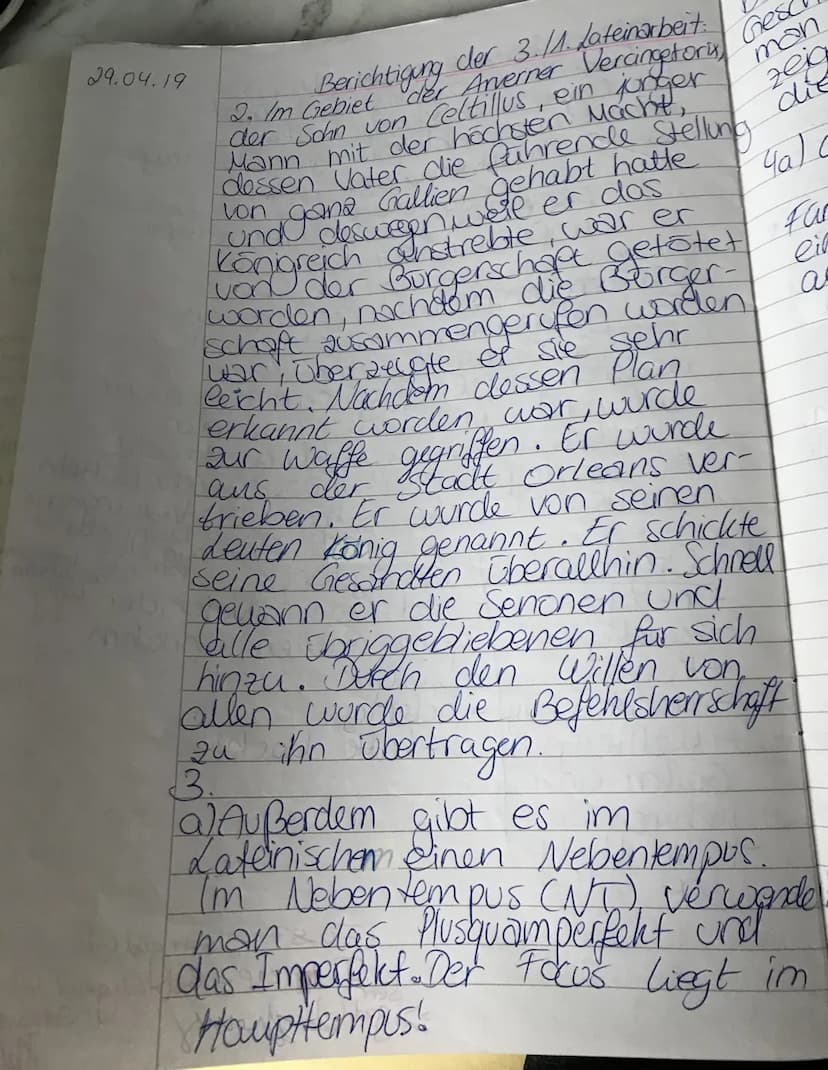 29.04.19
Berichtigung der 3./1. Lateinarbeit:
2. Im Gebiet der Arverner Vercingetorix,
der Sohn von Celtillus, ein junger
Mann mit der höchsten Macht,
dessen Vater die führende Stellung
von ganz Gallien gehabt hatte
und deswegen, weil er das
Königreich anstrebte, war er
von der Bürgerschaft getötet
worden, nachdem die Bürger-
schaft zusammengerufen worden
war, überzeugte er sie sehr
leicht. Nachdem dessen Plan
erkannt worden war, wurde
zur Waffe gegriffen. Er wurde
aus der Stadt Orleans ver-
trieben. Er wurde von seinen
Leuten König genannt. Er schickte
seine Gesandten überallhin. Schnell
gewann er die Senonen und
alle übriggebliebenen für sich
hinzu. Durch den Willen von
allen wurde die Befehlsherrschaft
zu ihn übertragen.
3.
a) Außerdem gibt es im
Lateinischen einen Nebentempus.
Im Nebentempus (NT) verwende
man das Plusquamperfekt und
das Imperfekt. Der Focus liegt im
Haupttempus!
man
zeig
die
4a)
Für